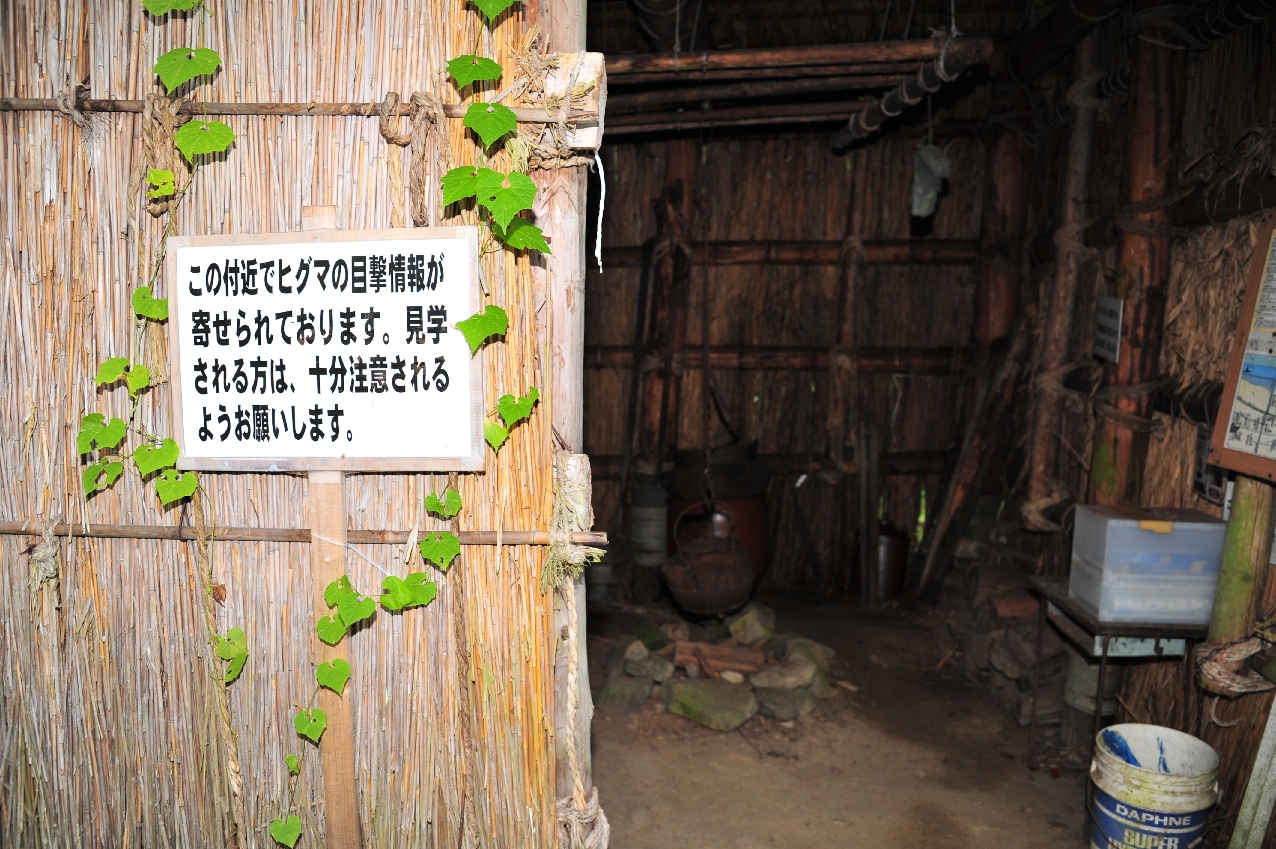 この付近でヒグマの目撃情報が
寄せられております。見学
される方は、十分注意される
ようお願いします。
DAPHNE
SUPER